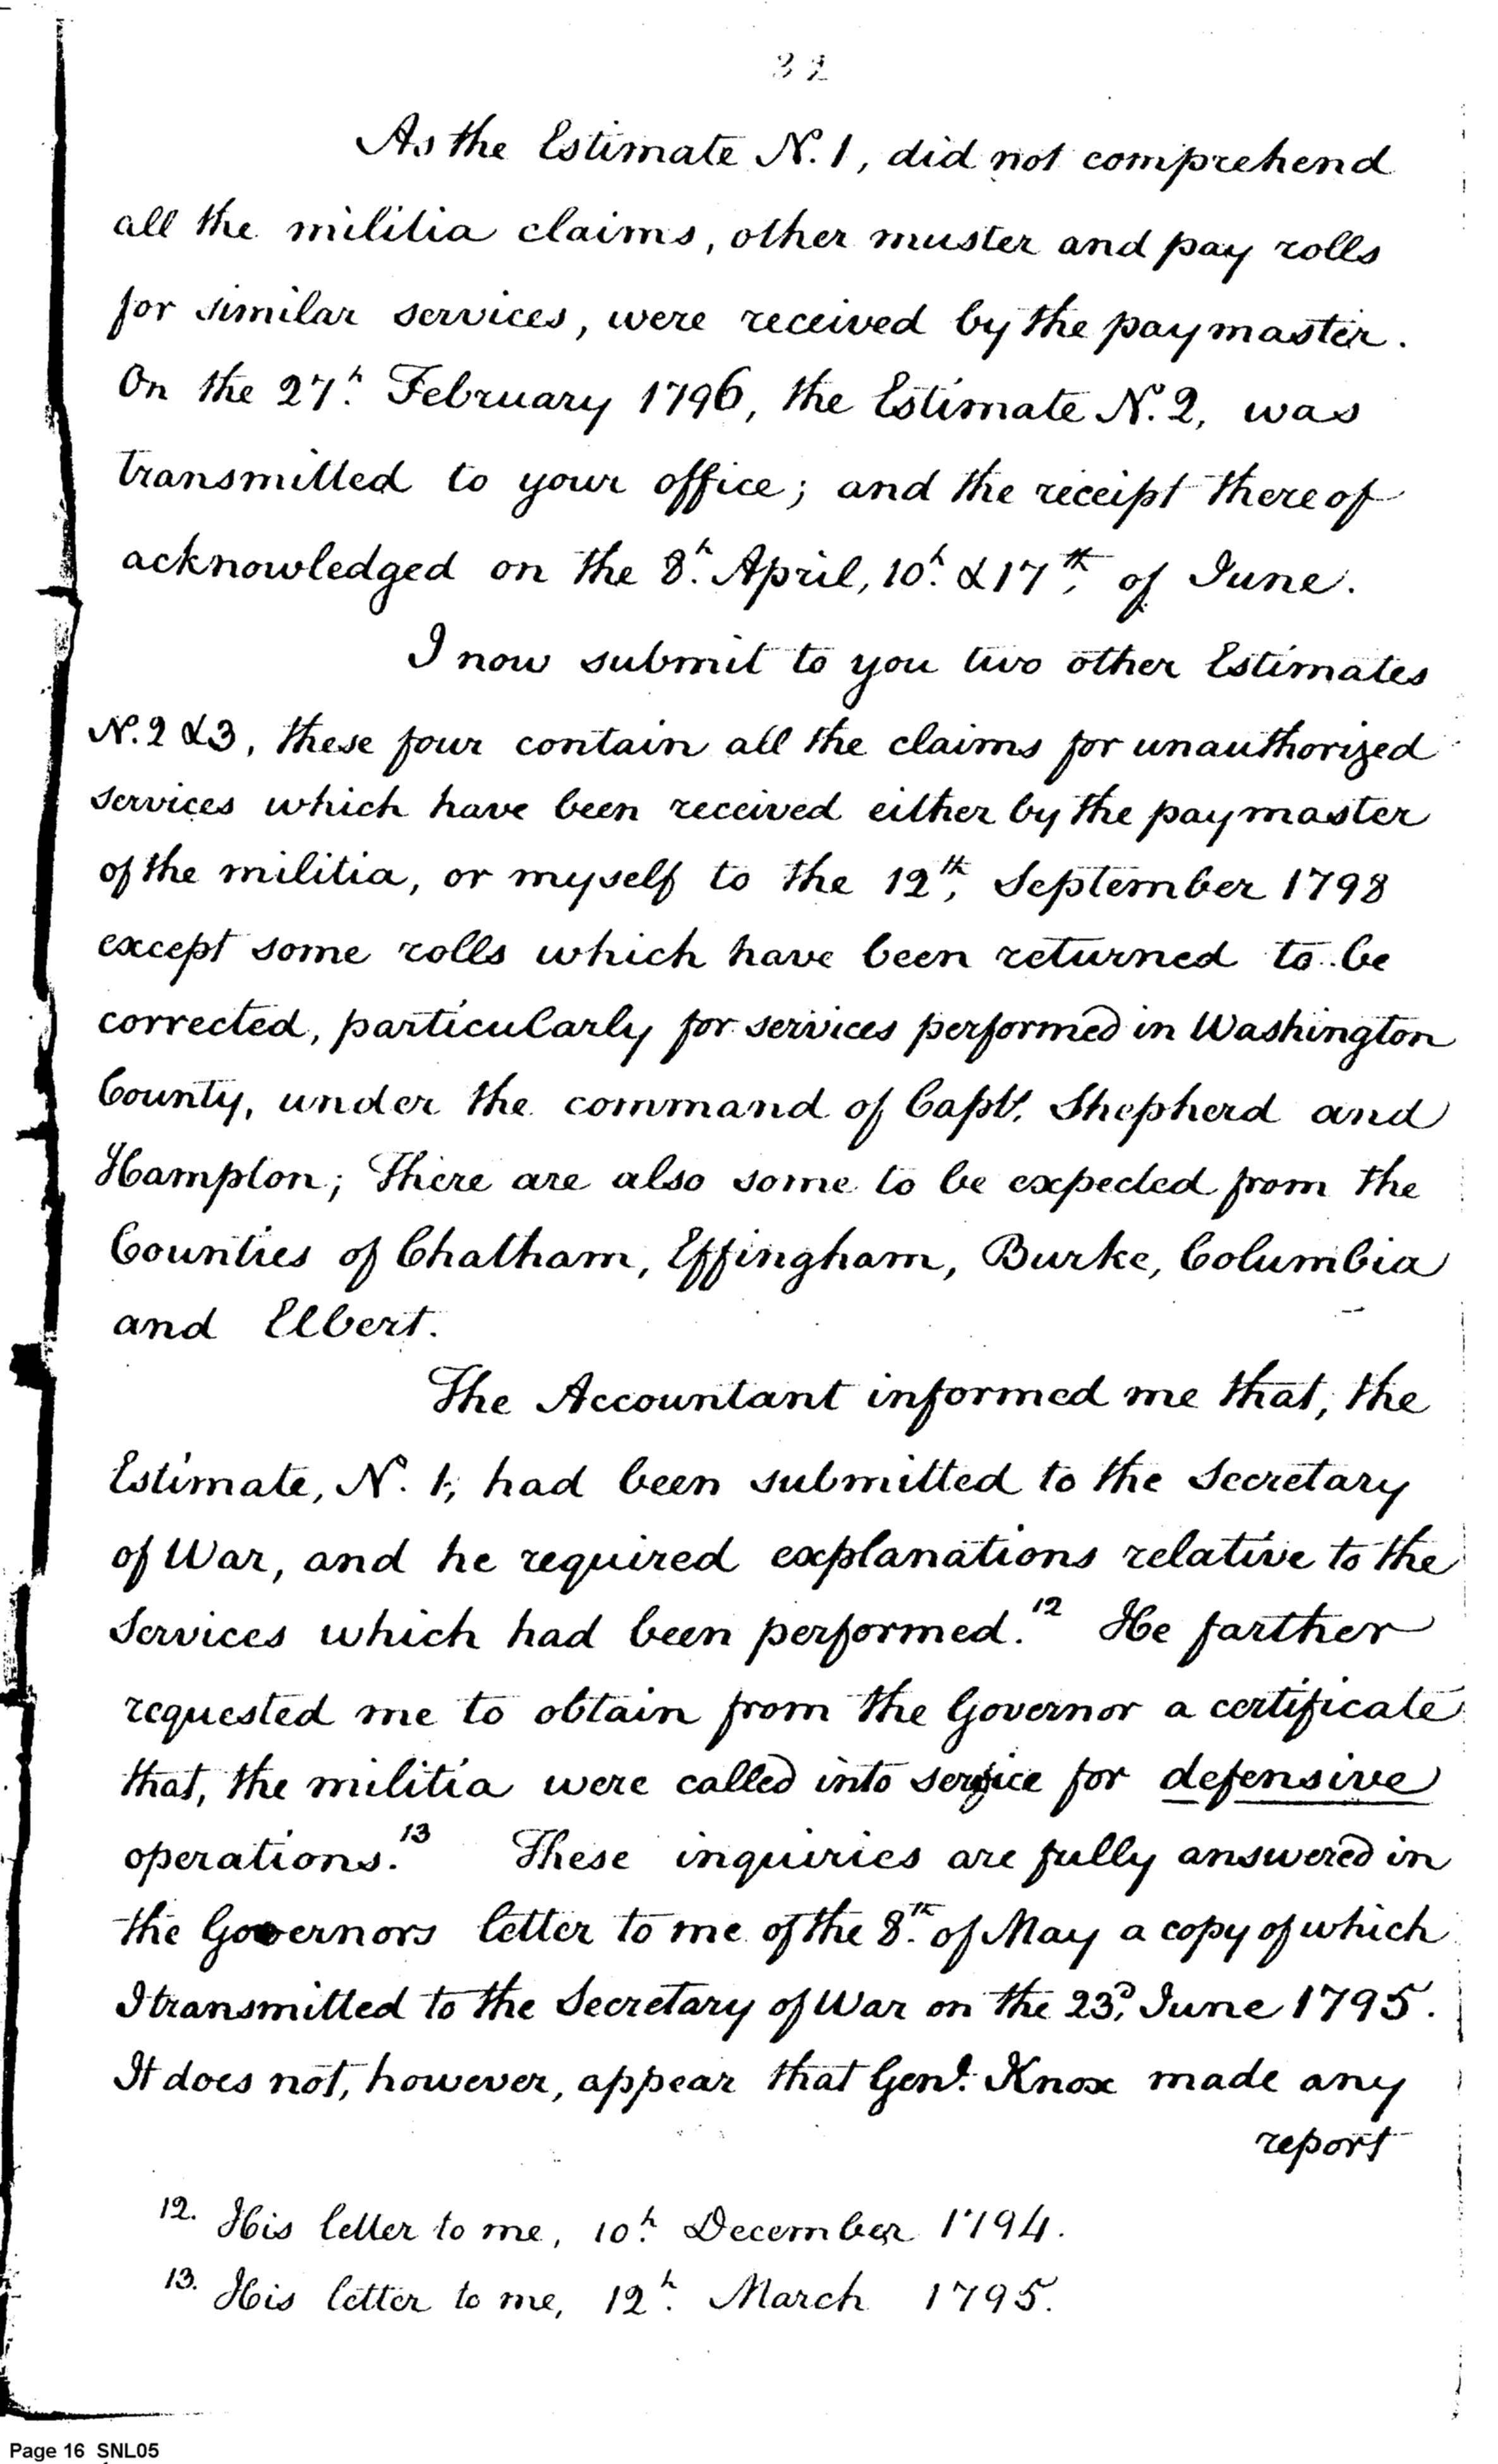 32
As the Estimate N.º 1, did not comprehend
all the militia claims, other muster and pay rolls
for similar services, were received by the paymaster.
On the 27.h February 1796, the Estimate N.º 2, was
transmitted to your office; and the receipt thereof
acknowledged on the 8.h April, 10.h & 17th, of June.
I now submit to you two other Estimates
N.º 2 & 3, these four contain all the claims for unauthorized
services which have been received either by the paymaster
of the militia, or myself to the 12th, September 1798
except some rolls which have been returned to be
corrected, particularly for services performed in Washington
County, under the command of Capts. Shepherd and
Hampton; There are also some to be expected from the
Counties of Chatham, Effingham, Burke, Columbia
and Elbert.
The Accountant informed me that, the
Estimate, N.º 1, had been submitted to the Secretary
of War, and he required explanations relative to the
services which had been performed.12 He farther
requested me to obtain from the Governor a certificate
that, the militia were called into service for defensive
operations.13 These inquiries are fully answered in
the Governors letter to me of the 8.th of May a copy of which
I transmitted to the Secretary of War on the 23d, June 1795.
It does not, however, appear that Genl. Knox made any
report
12. His letter to me, 10.h December 1794.
13. His letter to me, 12.h March 1795.
Page 16 SNL05